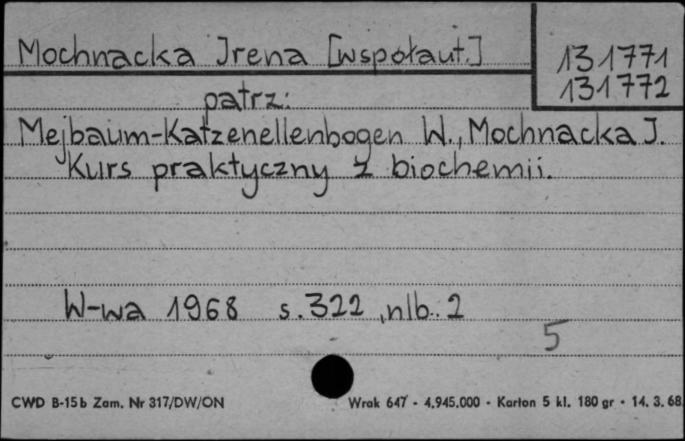 Mochnacka Irena [współaut.]
131771
131772
patrz:
Mejbaum-Katzenellenbogen W., Mochnacka I.
Kurs praktyczny z biochemii.
W-wa 1968 s. 322, nlb. 2
5
CWD B-15b Zam. Nr 317/DW/ON
Wrak 647 - 4.945.000 - Karton 5 kl. 180 gr - 14. 3. 68